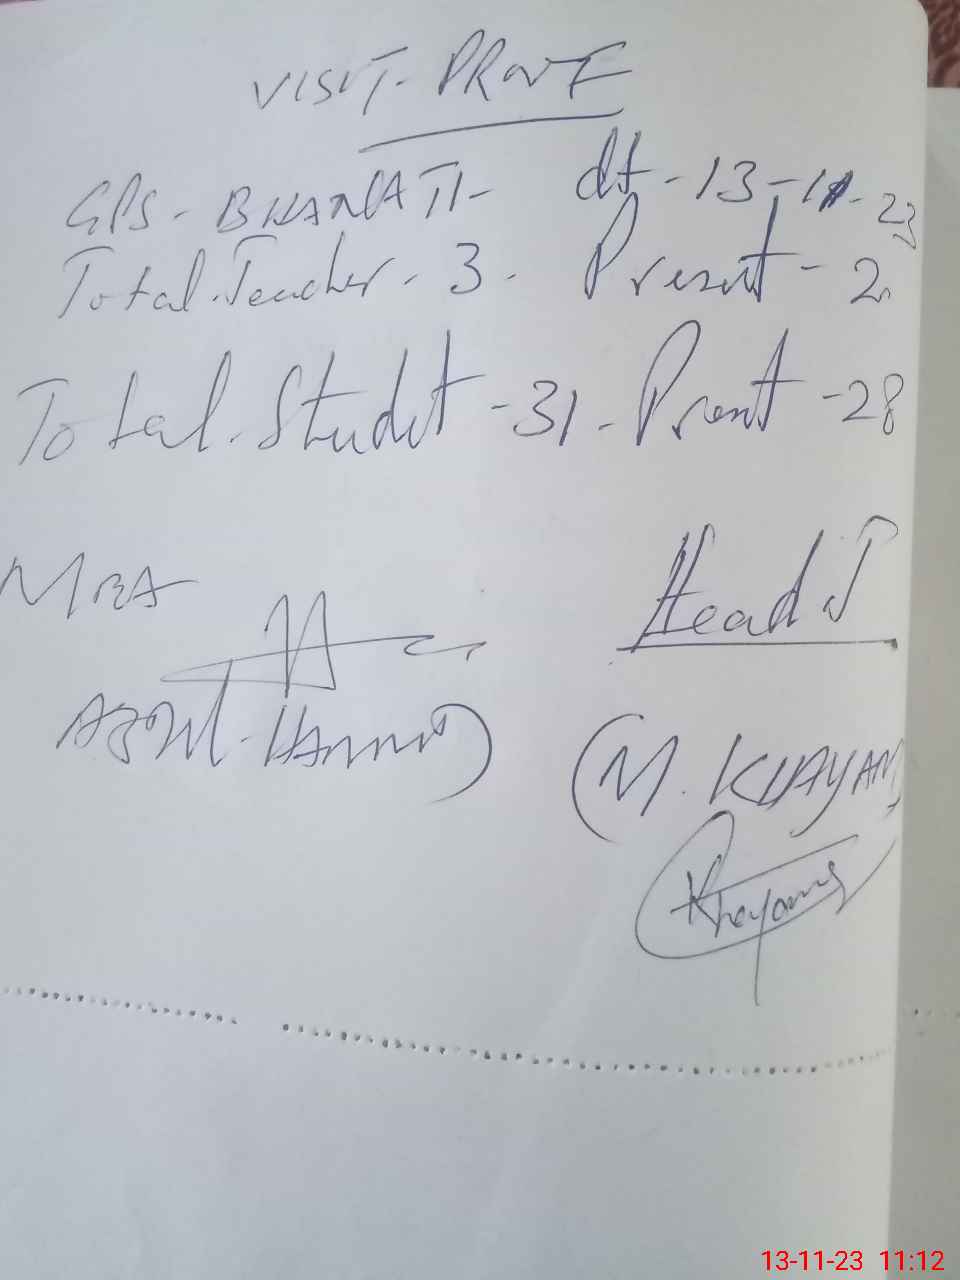 VISIT-PROVE
GPS-BHANATI- dt-13-11-23
Total.Teacher-3. Present-2.
Total.Studet-31-Present-28
MEA Head T
Azizul-Hannan) (M. KHAYAM)
Khayam
13-11-23 11:12